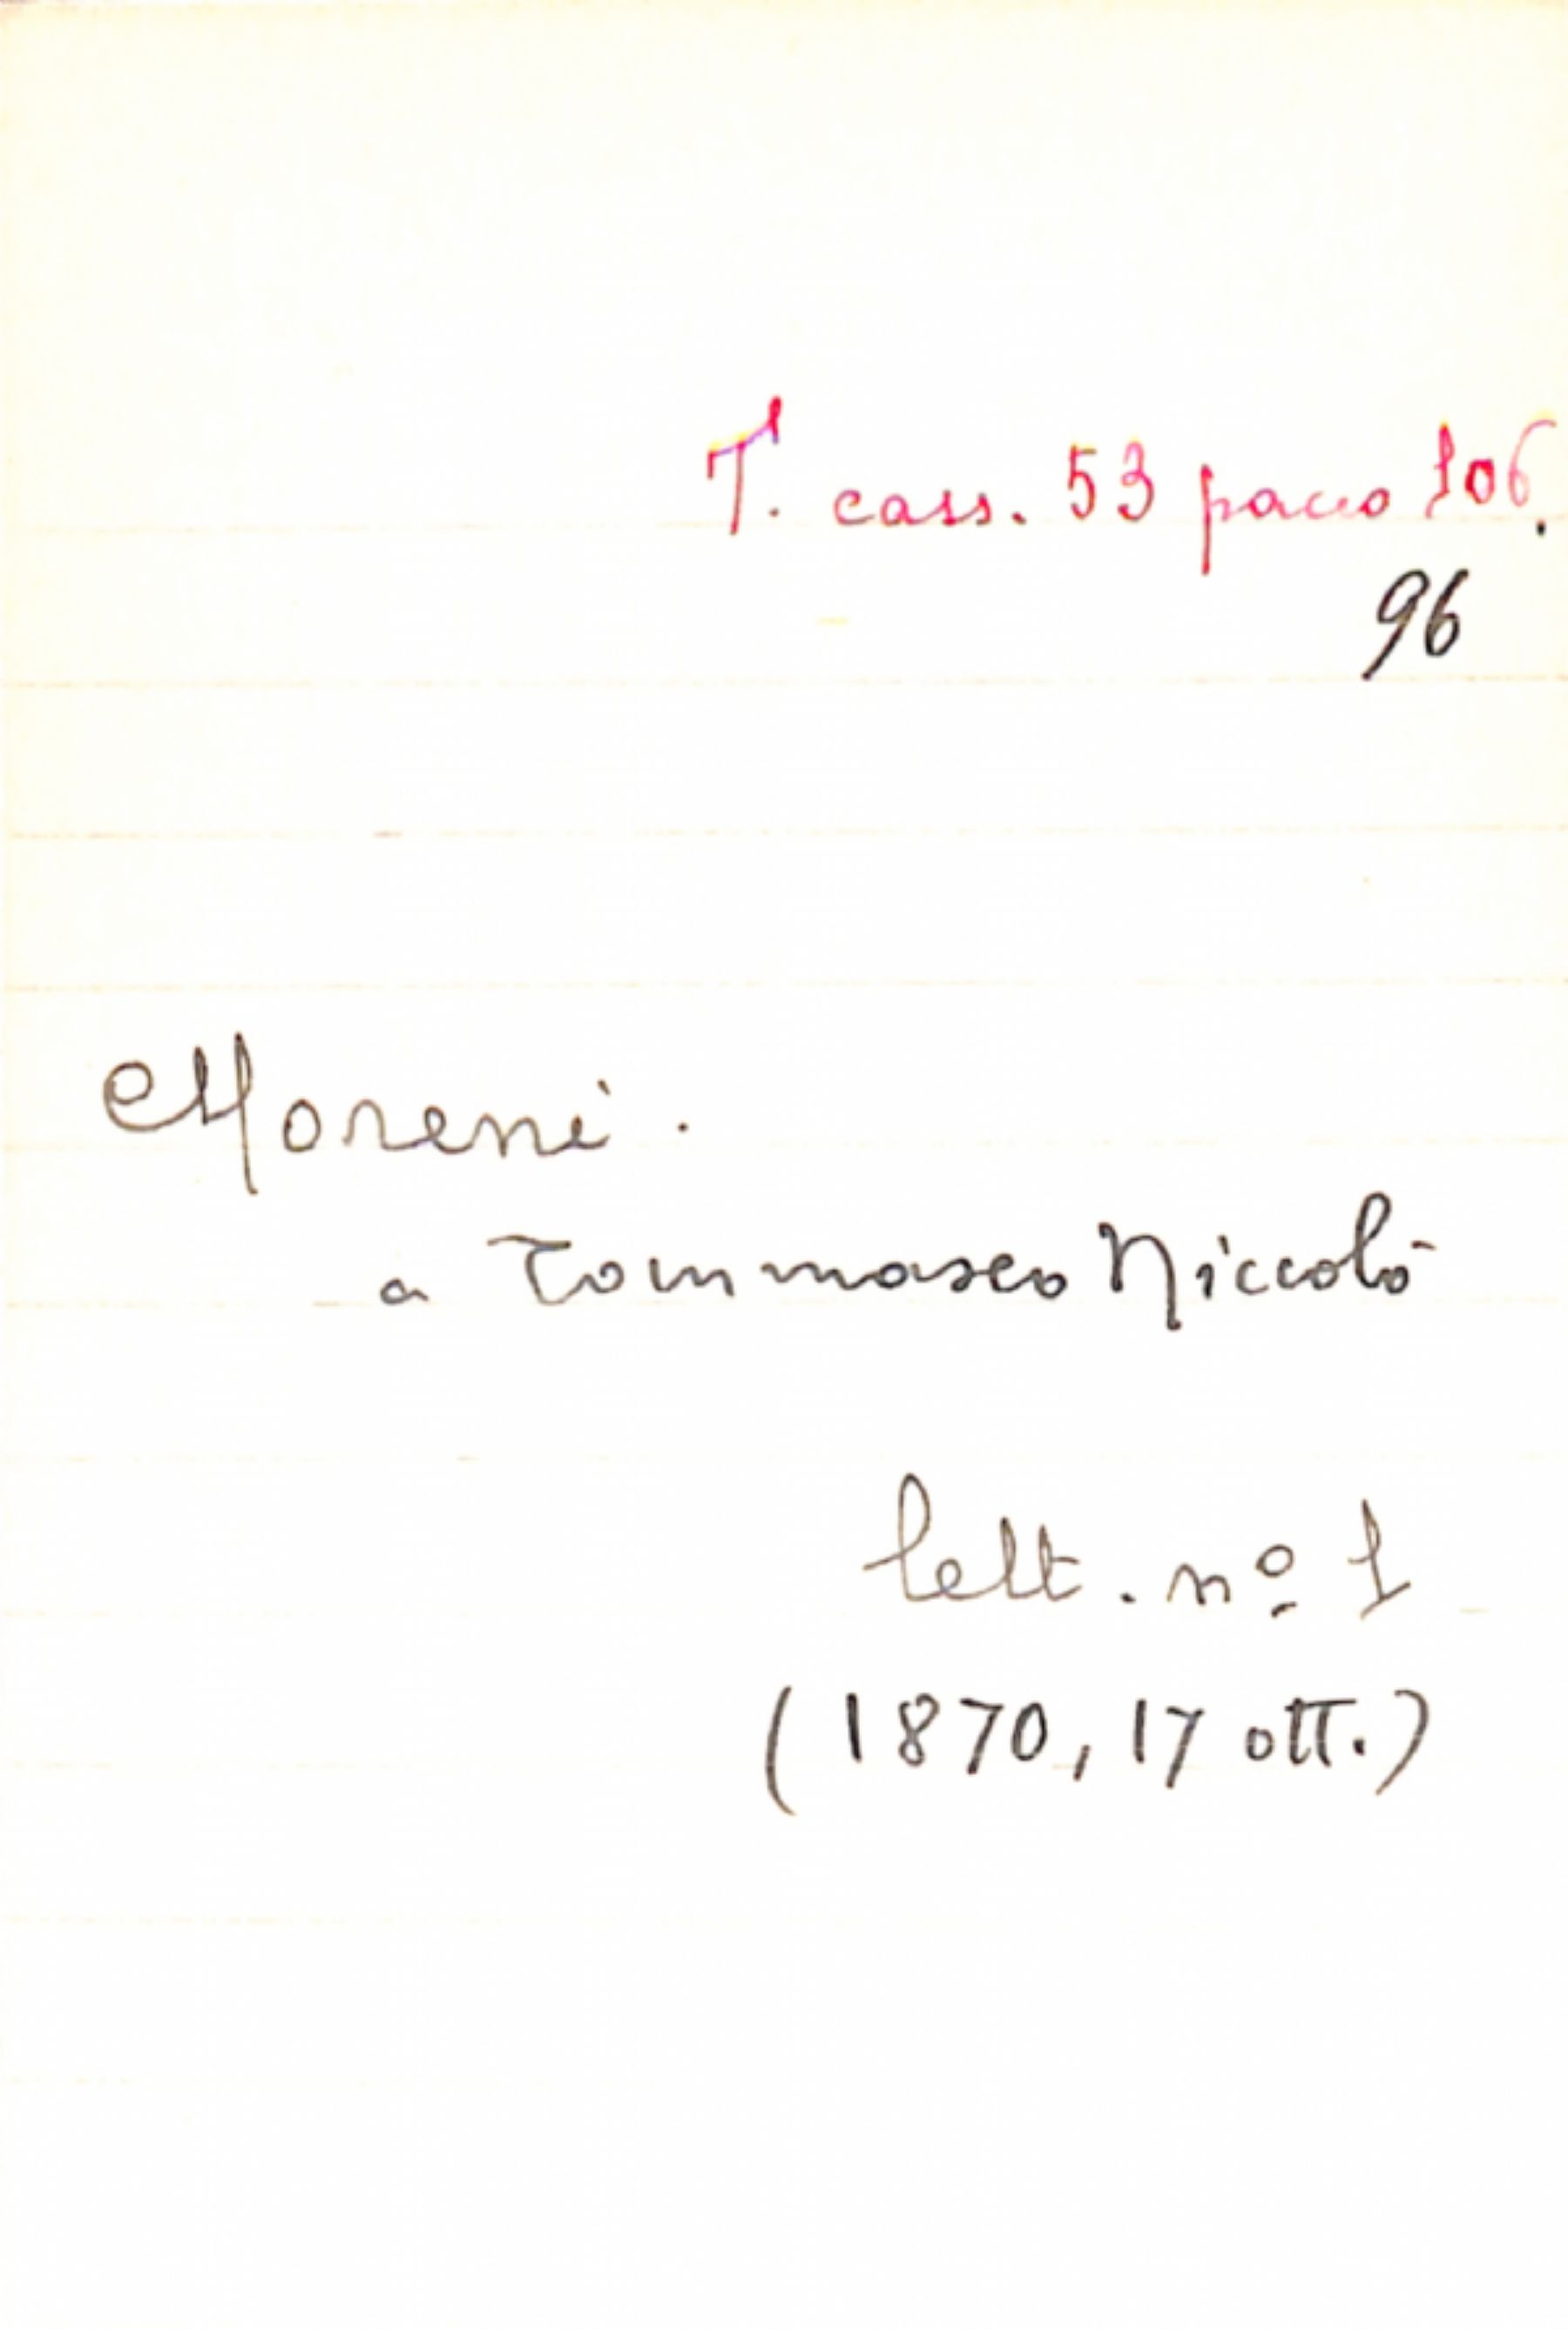 T. cass. 53 pacco 106.
96
Moreni.
a Tommaseo Niccolò
lett. nº 1
(1870, 17 ott.)